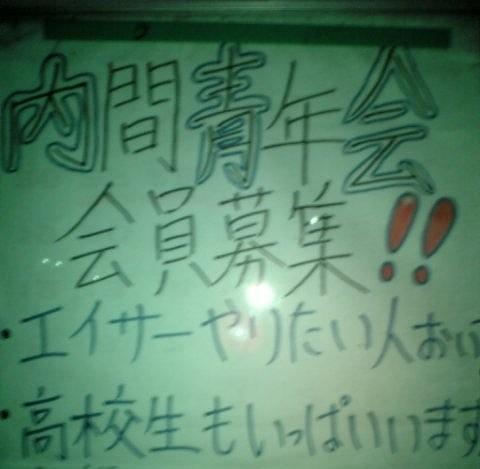 内間青年会
会員募集!!
・エイサーやりたい人おい
・高校生もいっぱいいます